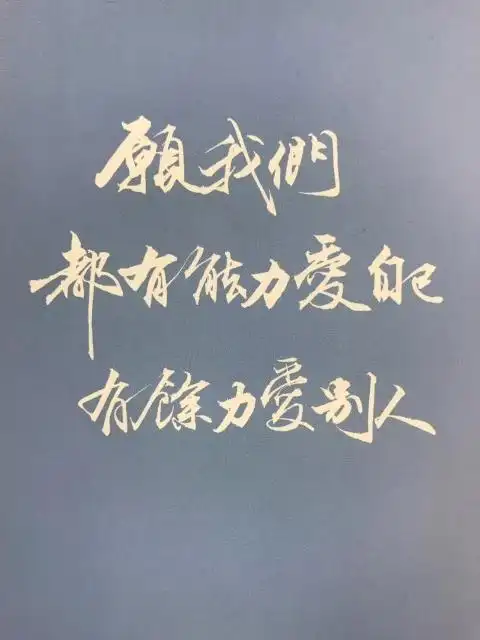 願我們
都有能力愛自己
有餘力愛别人